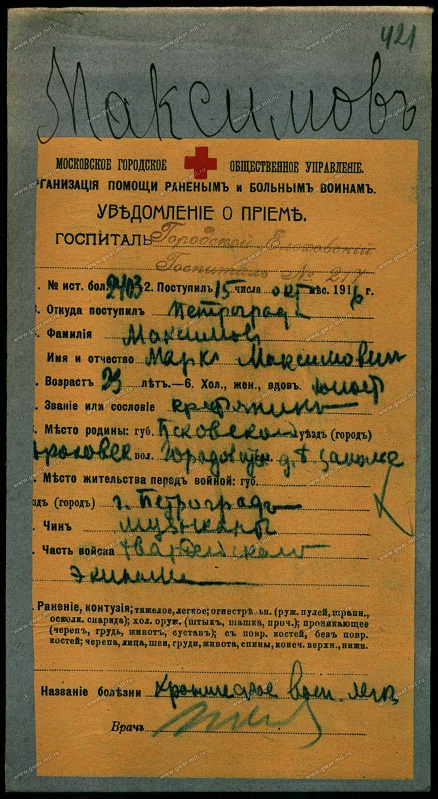 421
Максимовъ
МОСКОВСКОЕ ГОРОДСКОЕ ОБЩЕСТВЕННОЕ УПРАВЛЕНІЕ.
ГАНИЗАЦІЯ ПОМОЩИ РАНЕНЫМЪ и БОЛЬНЫМЪ ВОИНАМЪ.
УВѢДОМЛЕНІЕ О ПРІЕМѢ.
ГОСПИТАЛЬ Городской Елоховскій
Госпиталь №
. № ист. бол. 2403 2. Поступилъ 15 числа окт мѣс. 1916 г.
. Откуда поступилъ Петроградъ
. Фамилія Максимов
Имя и отчество Марк Максимович
. Возрастъ 23 лѣтъ.—6. Хол., жен., вдов. холост
. Званіе или сословіе крестянинъ
. Мѣсто родины: губ. Псковской уѣздъ (городъ)
вол. д.
. Мѣсто жительства передъ войной: губ.
здъ (городъ) г. Петроградъ
. Чинъ музыкантъ
. Часть войска Гвардейскаго
Экипажа
. Раненіе, контузія; тяжелое, легкое; огнестрѣльн. (руж. пулей, шрапн.,
осколк. снаряда); хол. оруж. (штыкъ, шашка, проч.); проникающее
(черепъ, грудь, животъ, суставъ); съ повр. костей, безъ повр.
костей; черепа, лица, шеи, груди, живота, спины, конеч. верхн., нижн.
Названіе болѣзни Хроническое восп. легк
Врачъ
www.gwar.mil.ru